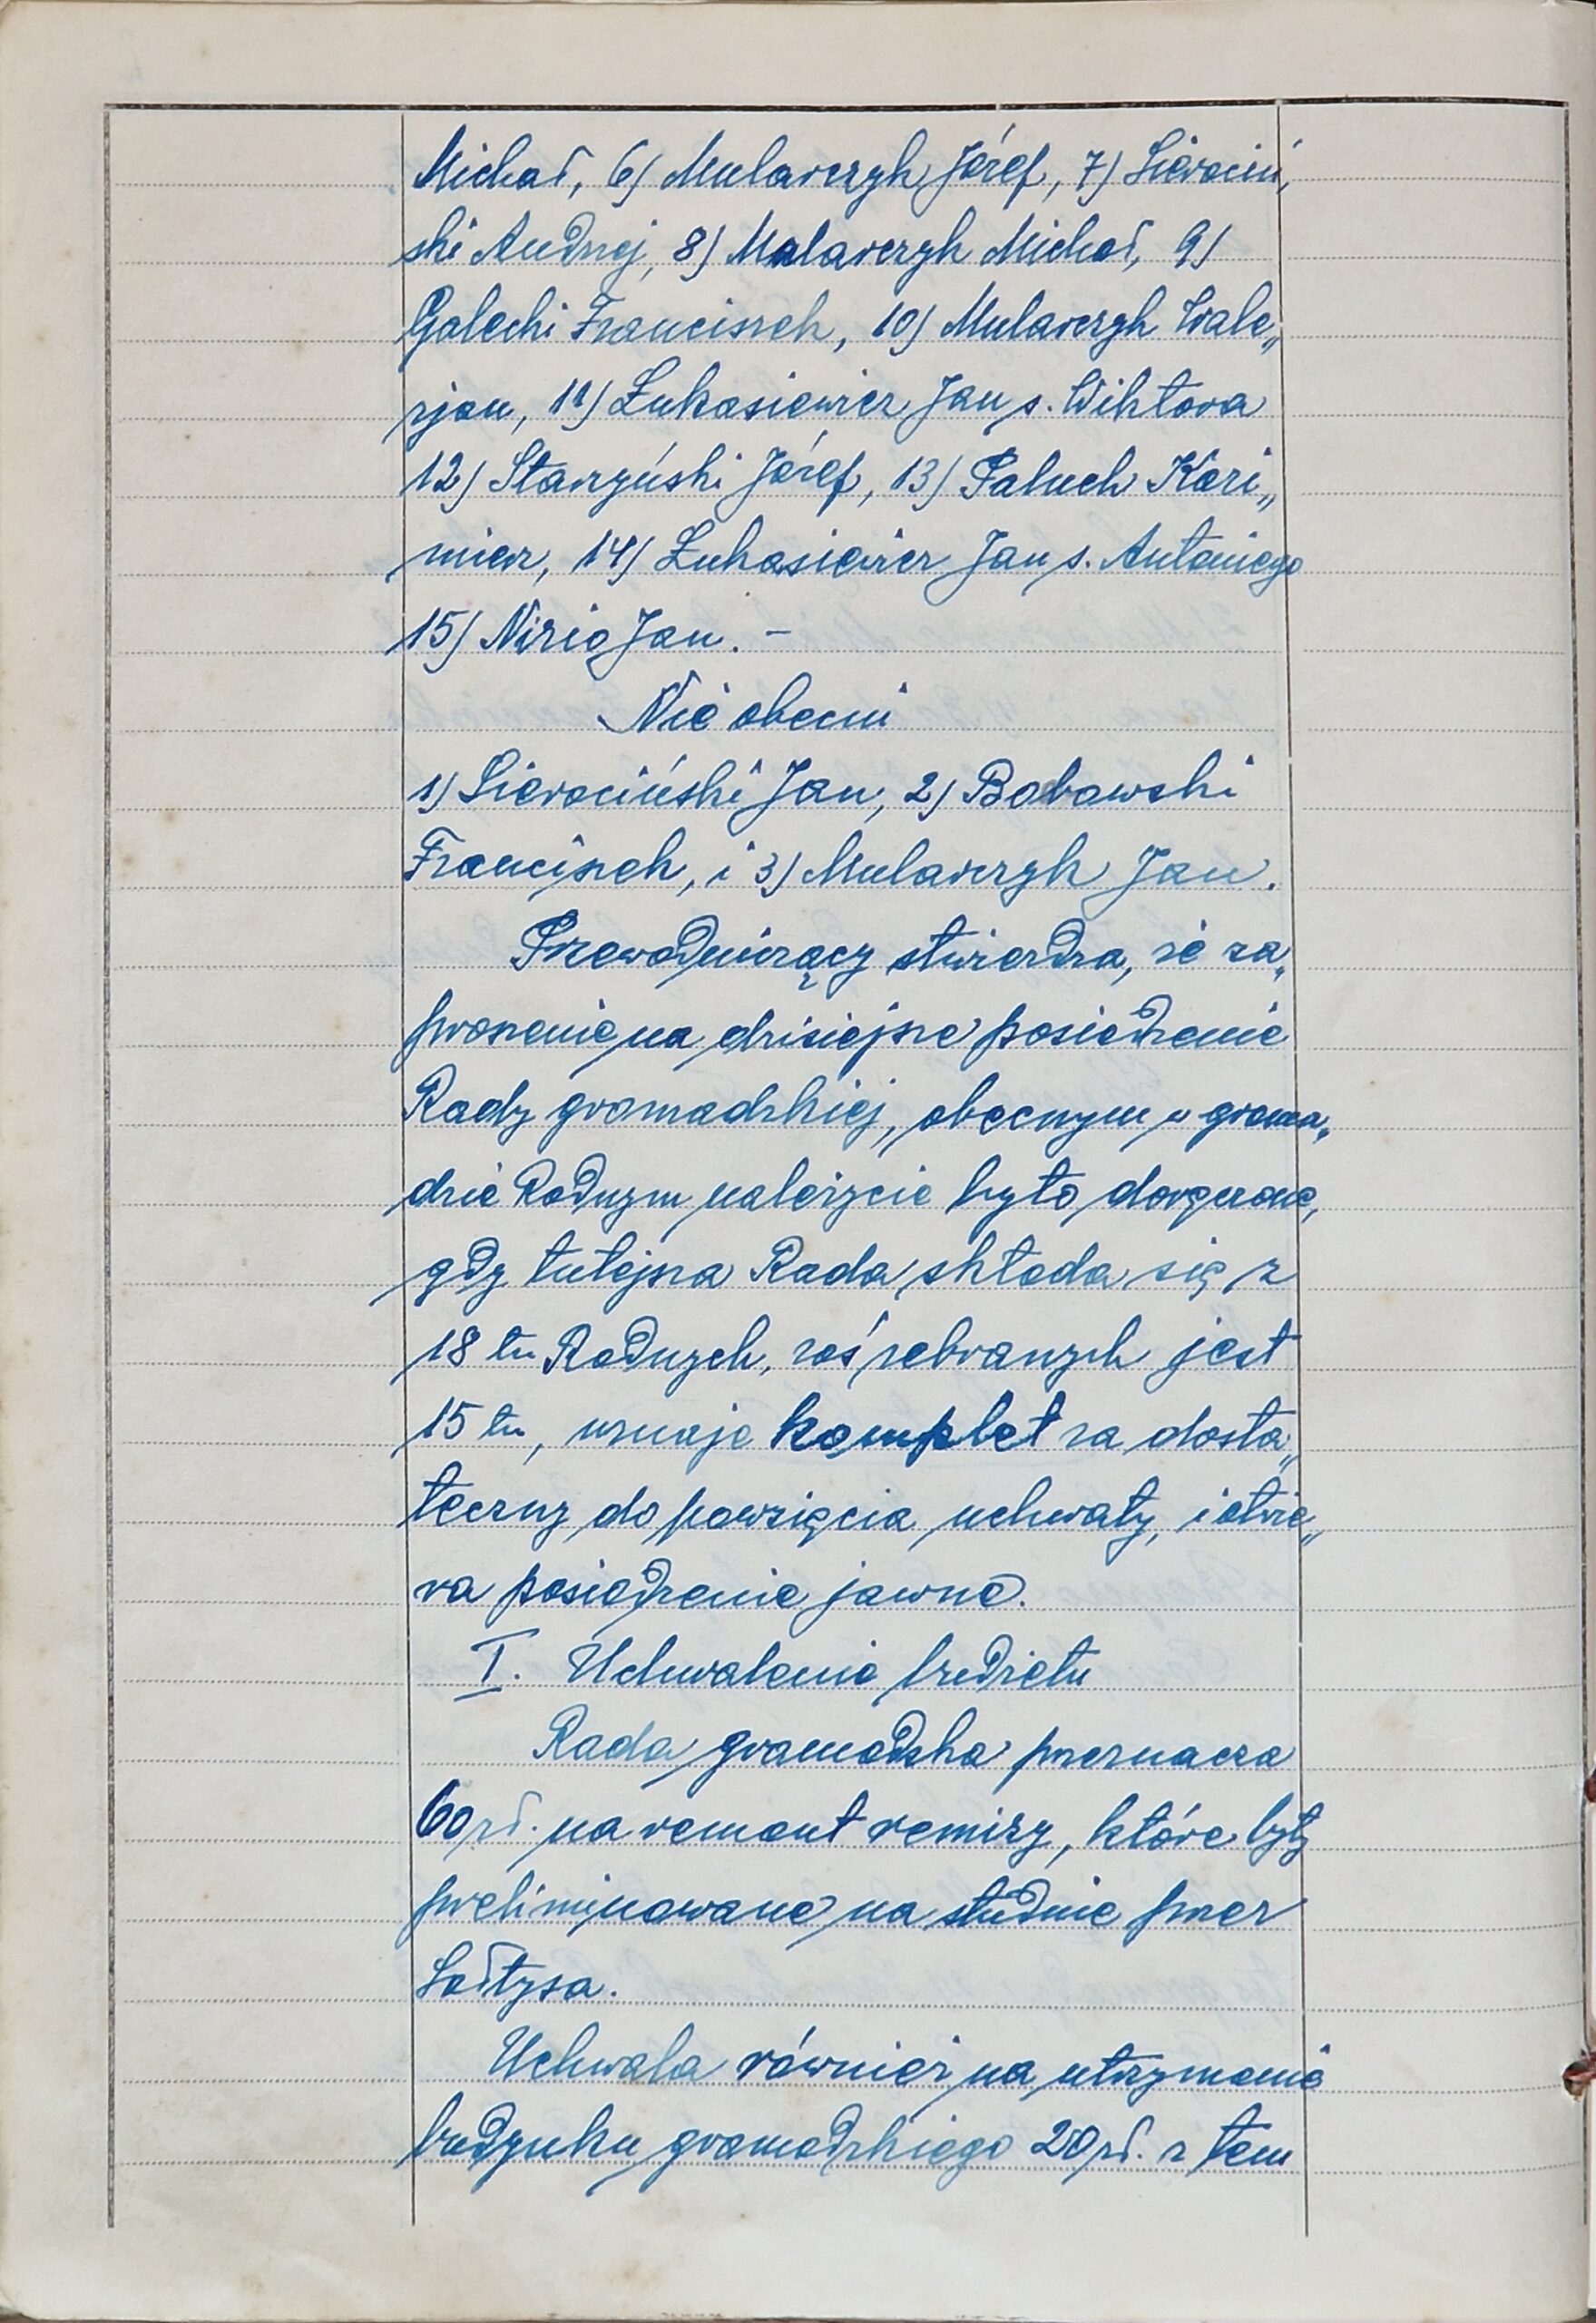 Michał, 6) Mularczyk Józef, 7) Sierociń,
ski Andrzej, 8) Mularczyk Michał, 9)
Galecki Franciszek, 10) Mularczyk Wale„
rjan, 11) Łukasiewicz Jan s. Wiktora
12) Starzyński Józef, 13) Paluch Kazi„
mierz, 14) Łukasiewicz Jan s. Antoniego
15) Nizio Jan. –
Nie obecni
1) Sierociński Jan, 2) Bobowski
Franciszek, i 3) Mularczyk Jan.
Przewodniczący stwierdza, że za„
proszenie na dzisiejsze posiedzenie
Rady gromadzkiej, obecnym w groma„
dzie Radnym należycie było doręczone,
gdy tutejsza Rada składa się z
18 tu Radnych, zaś zebranych jest
15 tu, uznaje komplet za dosta„
teczny do powzięcia uchwały, i otwie„
ra posiedzenie jawne.
I. Uchwalenie budżetu
Rada gromadzka przeznacza
60 zł. na remont remizy, które były
preliminowane na studnie przez
Sołtysa.
Uchwala również na utrzymanie
budynku gromadzkiego 20 zł. z tem